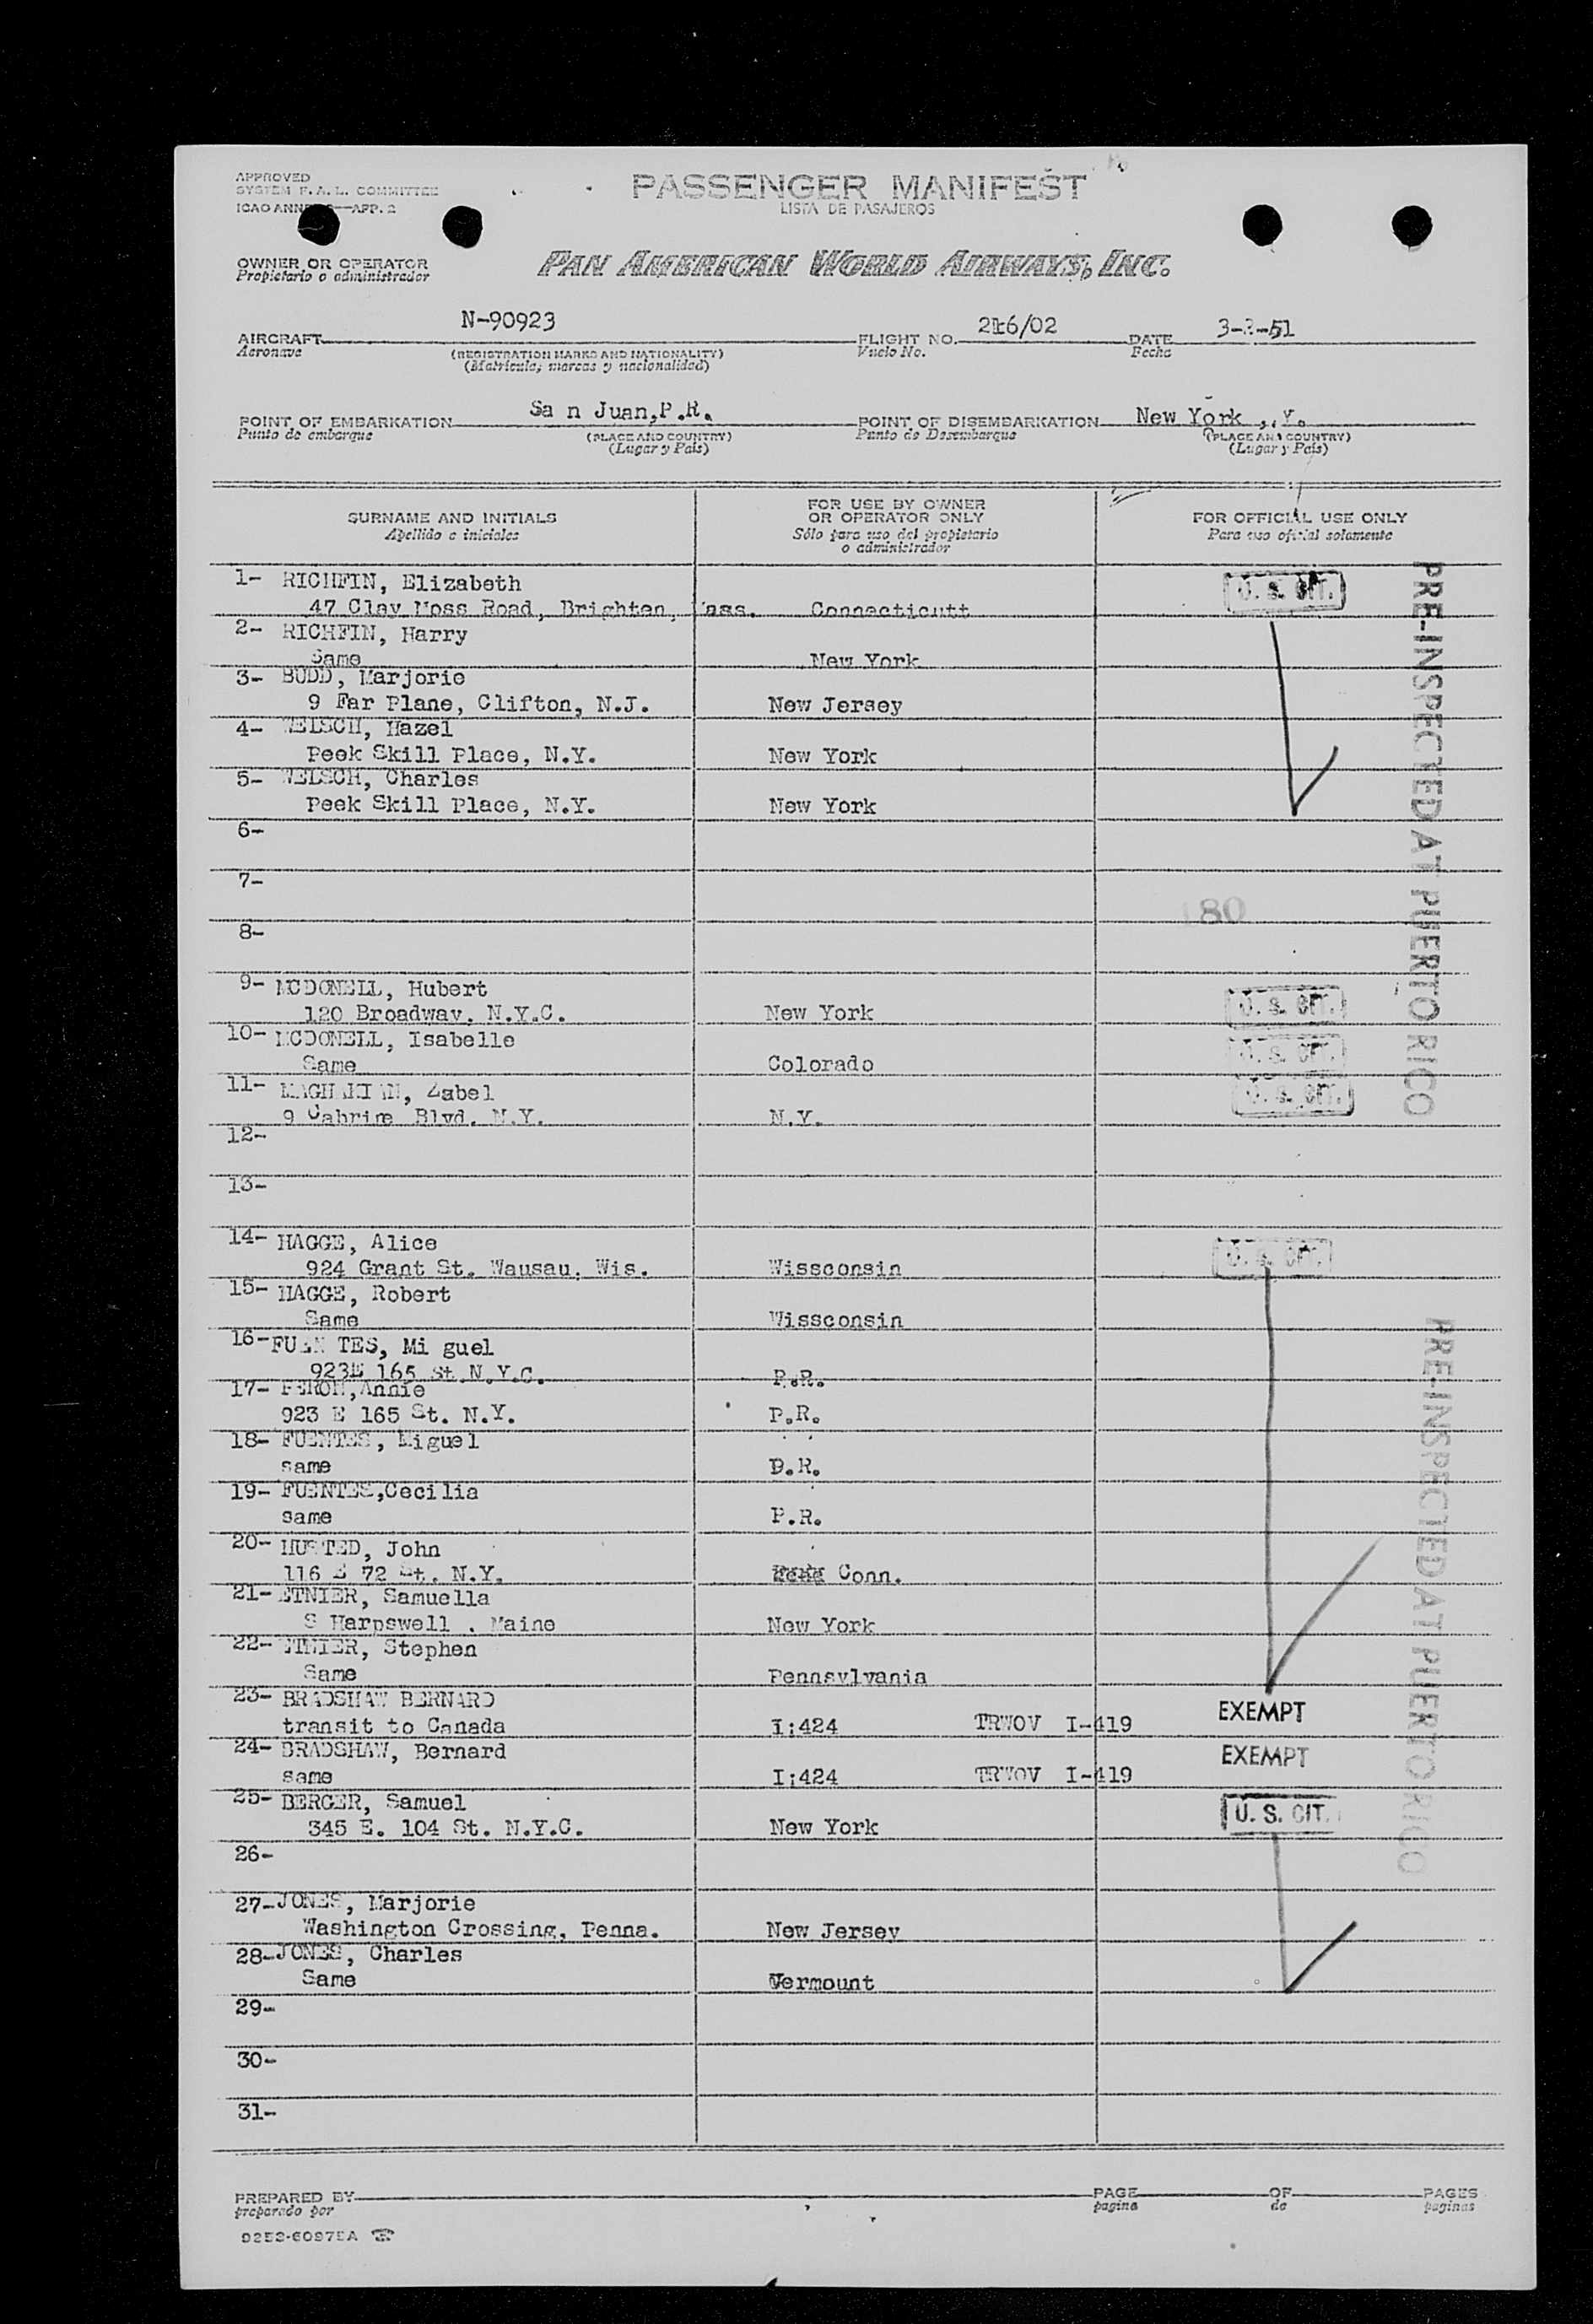 APPROVED
SYSTEM F. A. L. COMMITTEE
ICAO ANNEX —APP. 2
PASSENGER MANIFEST
LISTA DE PASAJEROS
OWNER OR OPERATOR
Propietario o administrador
PAN AMERICAN WORLD AIRWAYS, INC.
AIRCRAFT N-90923 FLIGHT NO. 216/02 DATE 3-2-51
Aeronave (REGISTRATION MARKS AND NATIONALITY) Vuelo No. Fecha
(Matrícula, marcas y nacionalidad)
POINT OF EMBARKATION Sa n Juan,P.R. POINT OF DISEMBARKATION New York ,.Y.
Punto de embarque (PLACE AND COUNTRY) Punto de Desembarque (PLACE AND COUNTRY)
(Lugar y País) (Lugar y País)
SURNAME AND INITIALS FOR USE BY OWNER OR OPERATOR ONLY FOR OFFICIAL USE ONLY
Apellido e iniciales Sólo para uso del propietario o administrador Para uso oficial solamente
1- RICHFIN, Elizabeth U. S. CIT.
47 Clay Moss Road, Brighten, Mass. Connecticutt
2- RICHFIN, Harry
Same New York
3- BUDD, Marjorie
9 Far Plane, Clifton, N.J. New Jersey
4- WELSCH, Hazel
Peek Skill Place, N.Y. New York
5- WELSCH, Charles
Peek Skill Place, N.Y. New York
6-
7-
180
8-
9- MCDONELL, Hubert U. S. CIT.
120 Broadway, N.Y.C. New York
10- MCDONELL, Isabelle U. S. CIT.
Same Colorado
11- Zabel U. S. CIT.
9 Cabrime Blvd. N.Y. N.Y.
12-
13-
14- HAGGE, Alice U. S. CIT.
924 Grant St. Wausau, Wis. Wissconsin
15- HAGGE, Robert
Same Wissconsin
16- FUEN TES, Mi guel
923E 165 St.N.Y.C. P.R.
17- PERON,Annie
923 E 165 St. N.Y. P.R.
18- FUENTES, Miguel
same P.R.
19- FUENTES,Cecilia
same P.R.
20- HUSTED, John
116 E 72 St. N.Y. Conn.
21- ETNIER, Samuella
S Harpswell , Maine New York
22- ETNIER, Stephen
Same Pennsylvania
23- BRADSHAW BERNARD EXEMPT
transit to Canada I:424 TRWOV I-419
24- BRADSHAW, Bernard EXEMPT
same I:424 TRWOV I-419
25- BERGER, Samuel U. S. CIT.
345 E. 104 St. N.Y.C. New York
26-
27- JONES, Marjorie
Washington Crossing, Penna. New Jersey
28- JONES, Charles
Same Vermount
29-
30-
31-
PRE-INSPECTED AT PUERTO RICO
PRE-INSPECTED AT PUERTO RICO
PREPARED BY PAGE OF PAGES
preparado por pagina de paginas
9252-60975A